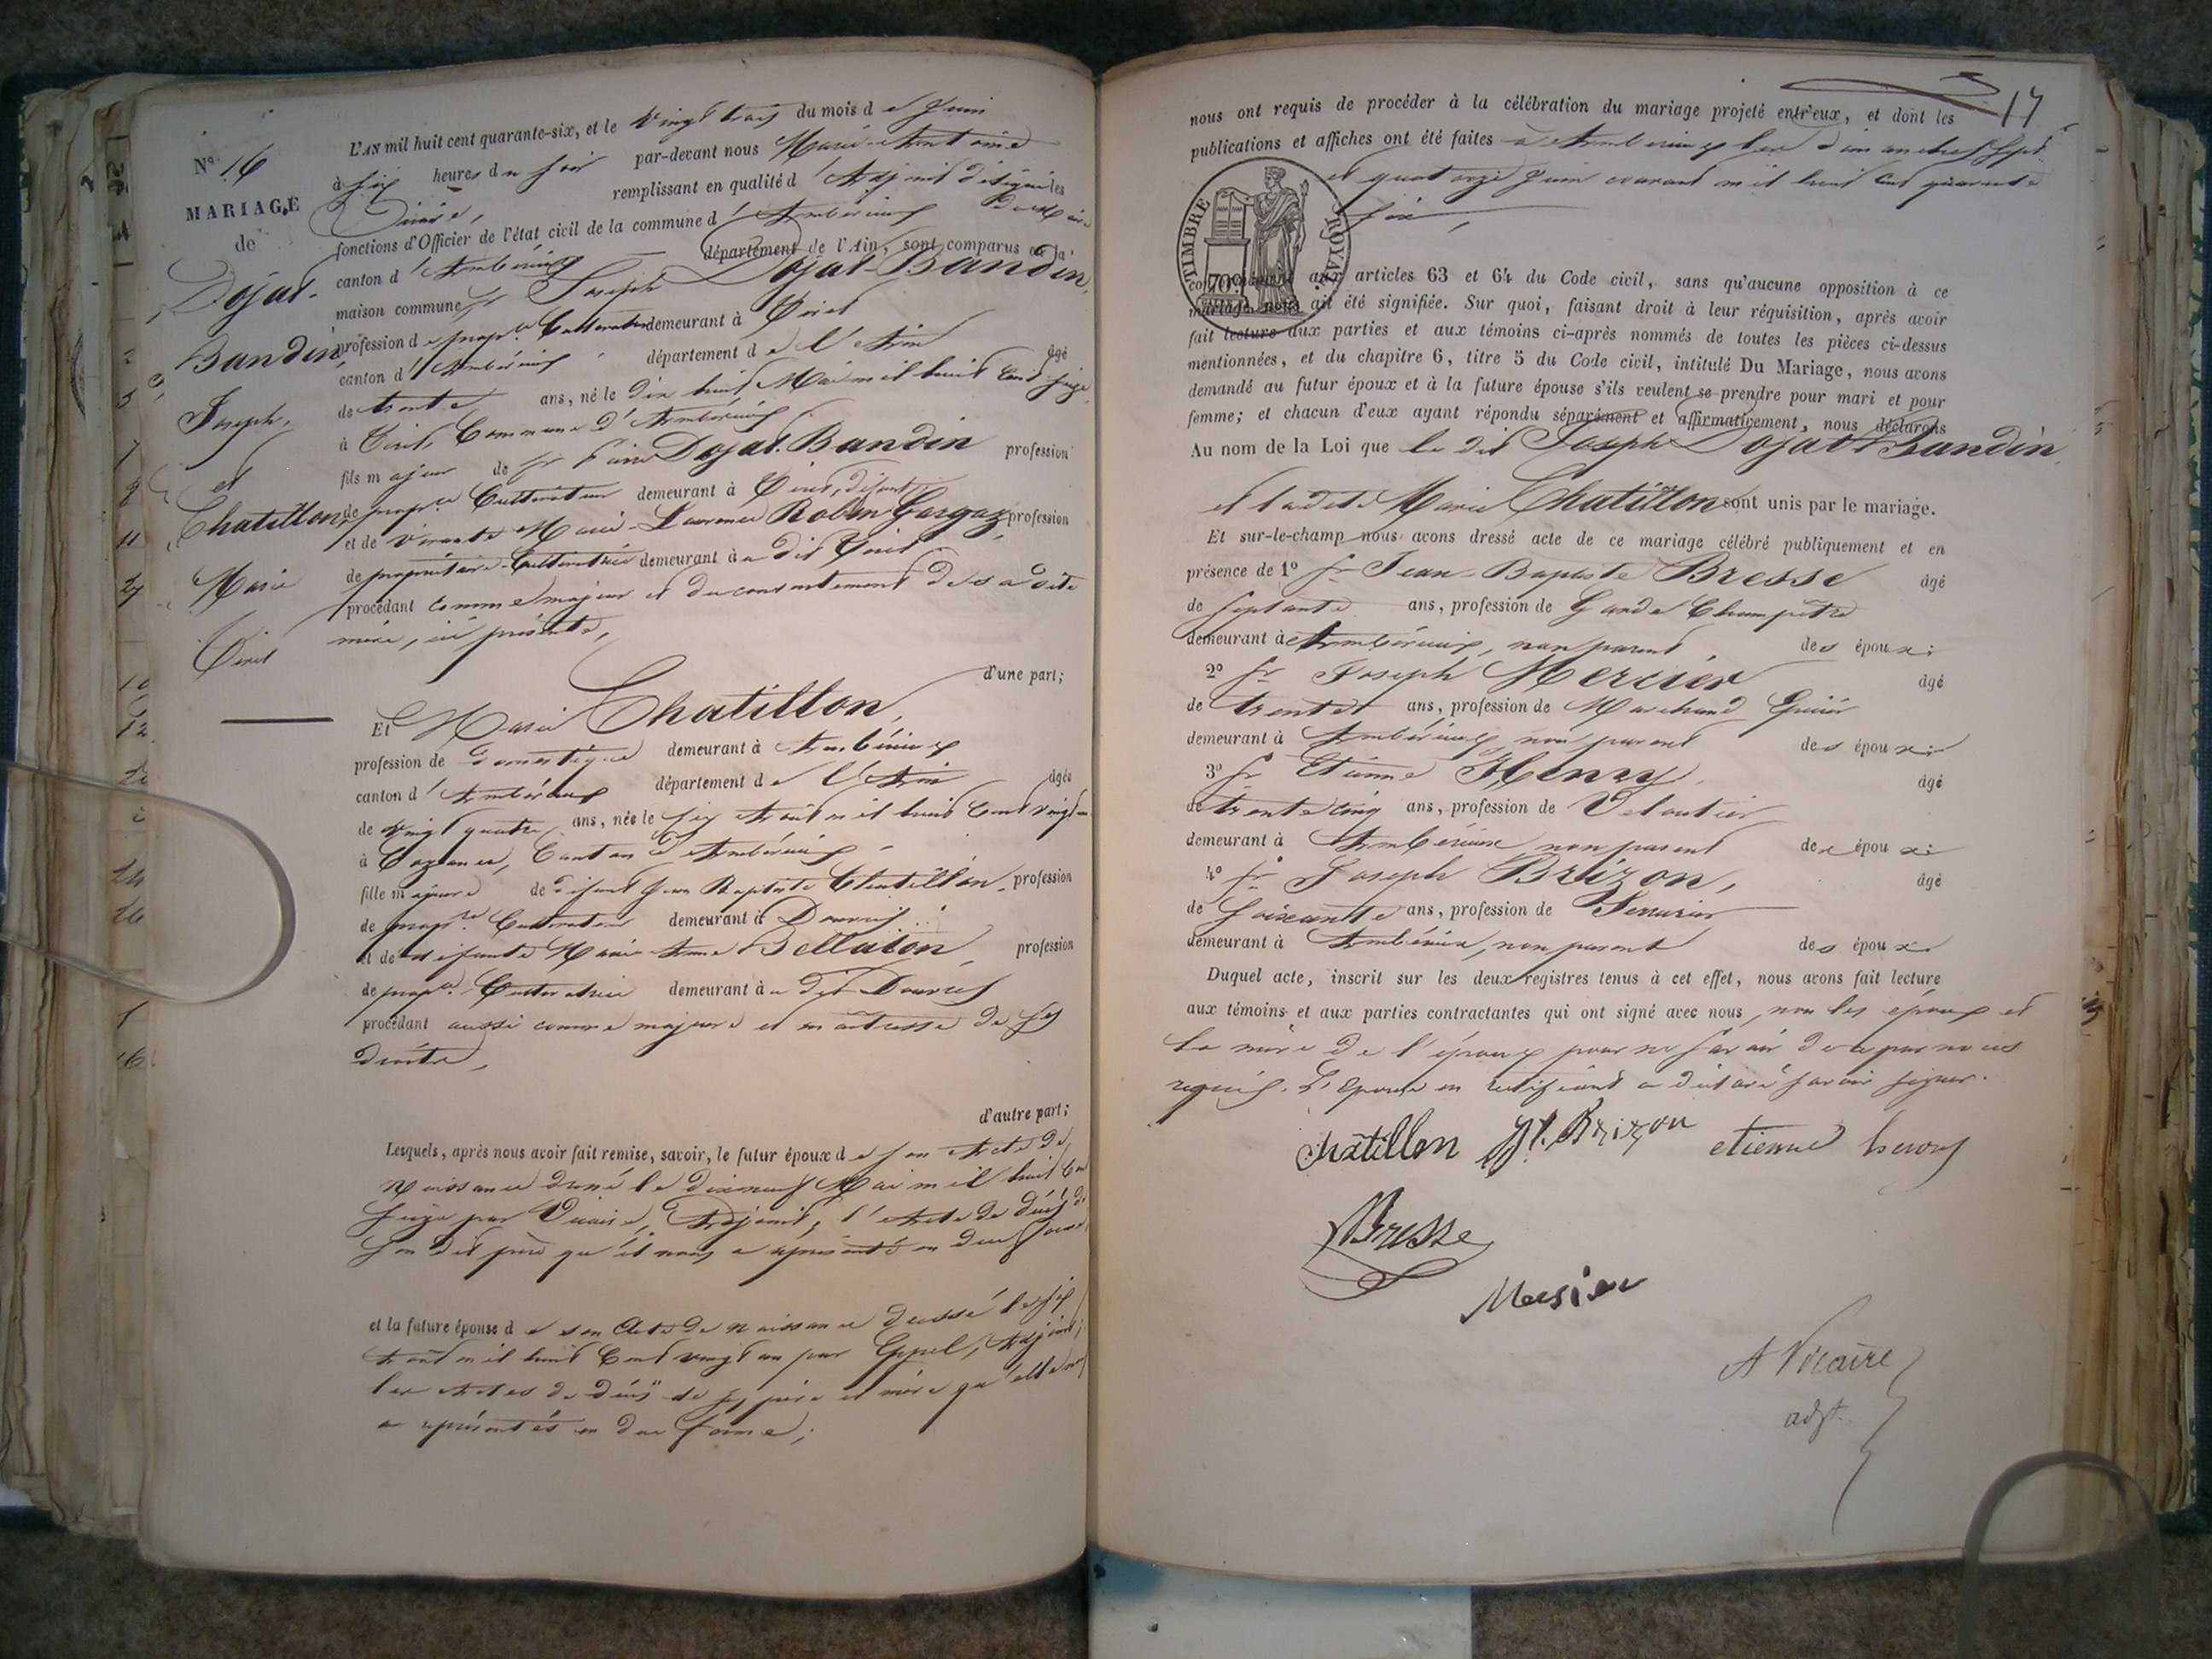 N° 16
MARIAGE
de
Dojat-
Bandin
Joseph,
et
Chatillon
Marie
Tiret
L'AN mil huit cent quarante-six, et le vingt trois du mois de Juin
à six heures du soir par-devant nous Marie-Antoine
remplissant en qualité d'Adjoint les
fonctions d'Officier de l'état civil de la commune d'Ambérieux
canton d'Ambérieux département de l'Ain, sont comparus en la
maison commune Sr Joseph Dojat-Bandin,
profession de propre Cultivateur demeurant à Tiret
canton d'Ambérieux département de l'Ain âgé
de trente ans, né le dix huit Mai mil huit Cent seize
à Tiret, Commune d'Ambérieux
fils majeur de Sr Dojat-Bandin profession
de propre Cultivateur demeurant à Tiret, défunt,
et de vivante Marie-Laurence Robin Gargaz, profession
de propriétaire-Cultivatrice demeurant à u dit Tiret
procédant comme majeur et du consentement de sa dite
mère, ici présente,
d'une part;
Et Marie Chatillon,
profession de domestique demeurant à Ambérieux
canton d'Ambérieux département de l'Ain âgée
de vingt quatre ans, née le six Août mil huit Cent vingt un
à Canton d'Ambérieux
fille majeure de défunt Jean Baptiste Chatillon, profession
de propre Cultivateur demeurant à Douvres
et de défunte Marie-Anne Bellaton, profession
de propre Cultivatrice demeurant à u dit Douvres
procédant aussi comme majeure et maîtresse de ses
droits,
d'autre part;
Lesquels, après nous avoir fait remise, savoir, le futur époux de son Acte de
Naissance donné le dixneuf Mai mil huit Cent
seize par Vicaire, Adjoint; l'Acte de décès de
son dit père qu'il nous a représenté en due forme
et la future épouse de son Acte de naissance dressé le six
Août mil huit Cent vingt un par Eppel, Adjoint;
les Actes de décès de ses père et mère qu'elle nous
a représentés en due forme;
17
nous ont requis de procéder à la célébration du mariage projeté entr'eux, et dont les
publications et affiches ont été faites à Ambérieux les dimanches sept
et quatorze Juin courant mil huit Cent quarante
six,
TIMBRE ROYAL
70c
conformément aux articles 63 et 64 du Code civil, sans qu'aucune opposition à ce
mariage nous ait été signifiée. Sur quoi, faisant droit à leur réquisition, après avoir
fait lecture aux parties et aux témoins ci-après nommés de toutes les pièces ci-dessus
mentionnées, et du chapitre 6, titre 5 du Code civil, intitulé Du Mariage, nous avons
demandé au futur époux et à la future épouse s'ils veulent se prendre pour mari et pour
femme; et chacun d'eux ayant répondu séparément et affirmativement, nous déclarons
Au nom de la Loi que le dit Joseph Dojat-Bandin
et la dite Marie Chatillon sont unis par le mariage.
Et sur-le-champ nous avons dressé acte de ce mariage célébré publiquement et en
présence de 1° Sr Jean-Baptiste Bresse âgé
de septante ans, profession de Garde Champêtre
demeurant à Ambérieux, non parent des époux;
2° Sr Joseph Mercier âgé
de trente ans, profession de Marchand Epicier
demeurant à Ambérieux, non parent des époux;
3° Sr Etienne Henry, âgé
de trente cinq ans, profession de Veloutier
demeurant à Ambérieux non parent des époux;
4° Sr Joseph Brizon, âgé
de soixante ans, profession de Serrurier
demeurant à Ambérieux, non parent des époux.
Duquel acte, inscrit sur les deux registres tenus à cet effet, nous avons fait lecture
aux témoins et aux parties contractantes qui ont signé avec nous, non les époux et
la mère de l'époux pour ne savoir de ce par nous
requis. L'épouse en rectifiant a déclaré savoir signer.
chatillon Jh. Brizon etienne henry
Bresse
Mersier
A Vicaire
adjt.